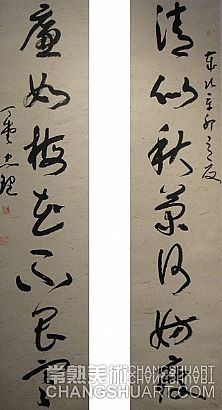 清似秋菊何妨瘦
歲次辛卯
廉如梅花不畏寒
常熟美術
CHANGSHUART.COM
CHANGSHUART.COM